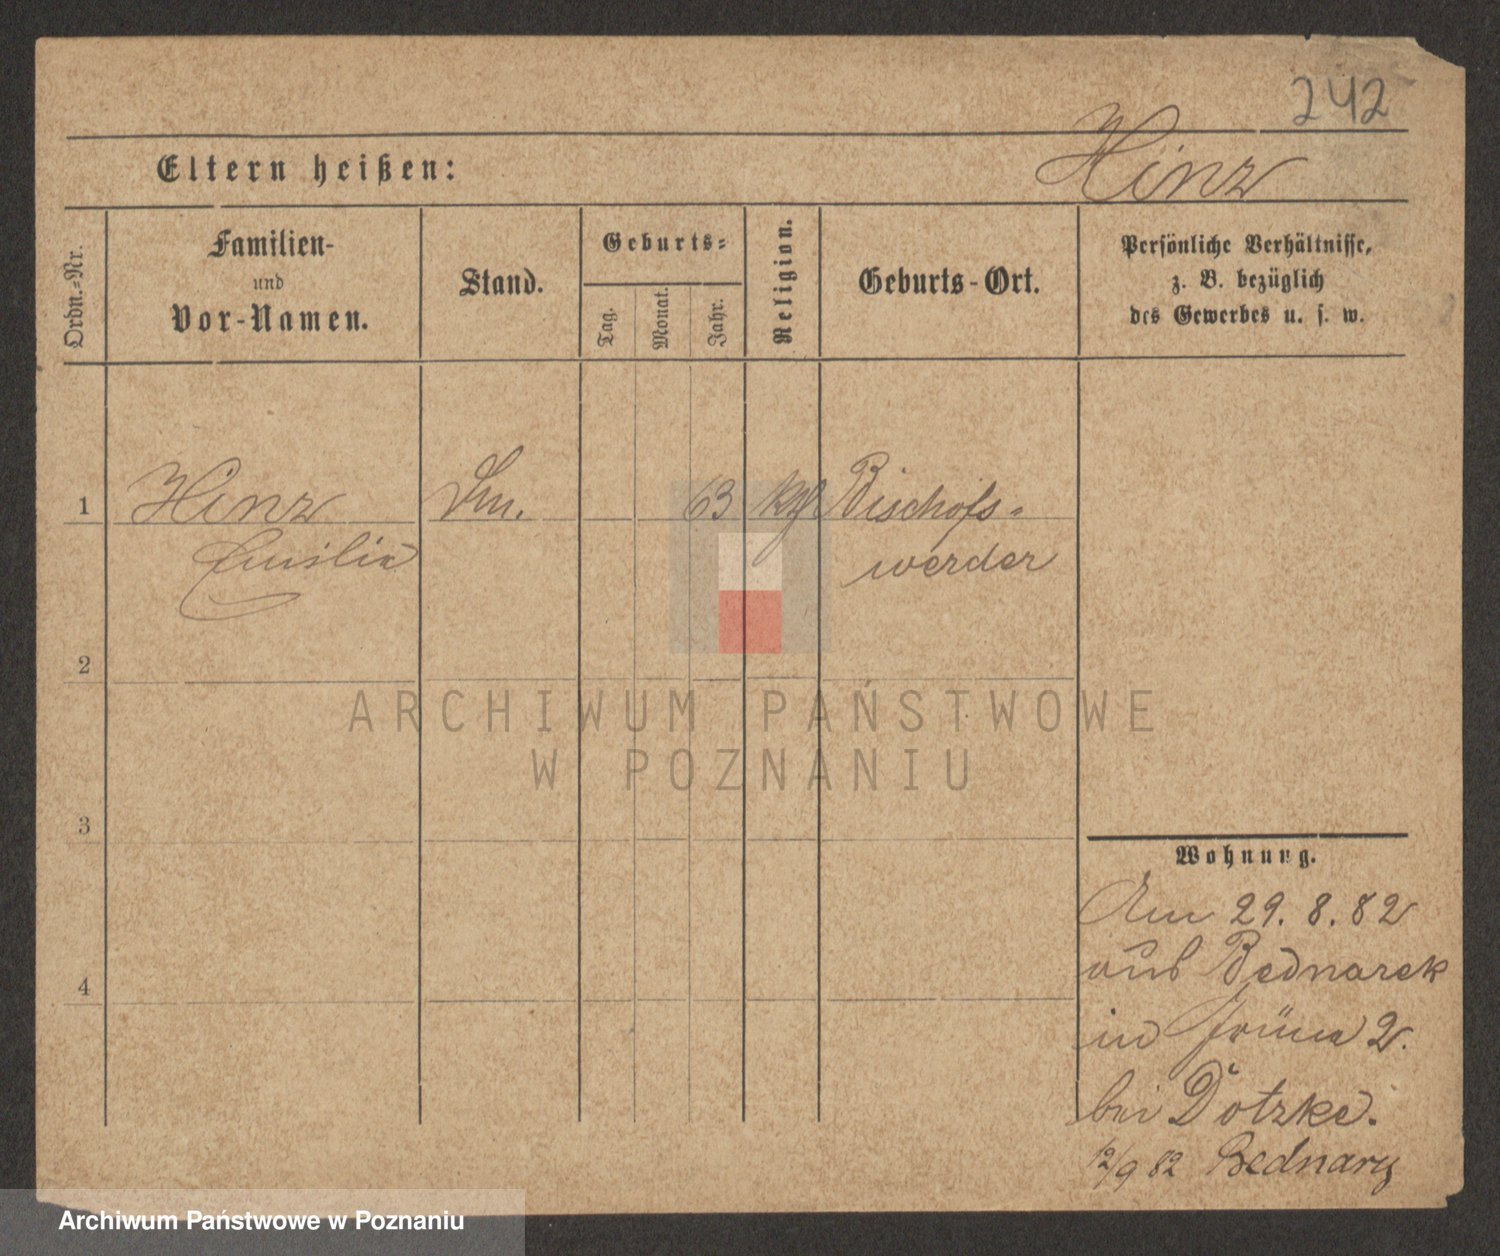 242
Eltern heißen:
Hinz
Ordn.-Nr.
Familien-
und
Vor-Namen.
Stand.
Geburts-
Tag.
Monat.
Jahr.
Religion.
Geburts-Ort.
Persönliche Verhältnisse,
z. B. bezüglich
des Gewerbes u. s. w.
1
Hinz
63
Bischofs-
Emilie
werder
2
ARCHIWUM PAŃSTWOWE
W POZNANIU
3
Wohnung.
Am 29. 8. 82
aus Bednarek
4
in 2.
bei Dotzke.
12/9 82 Bednary
Archiwum Państwowe w Poznaniu